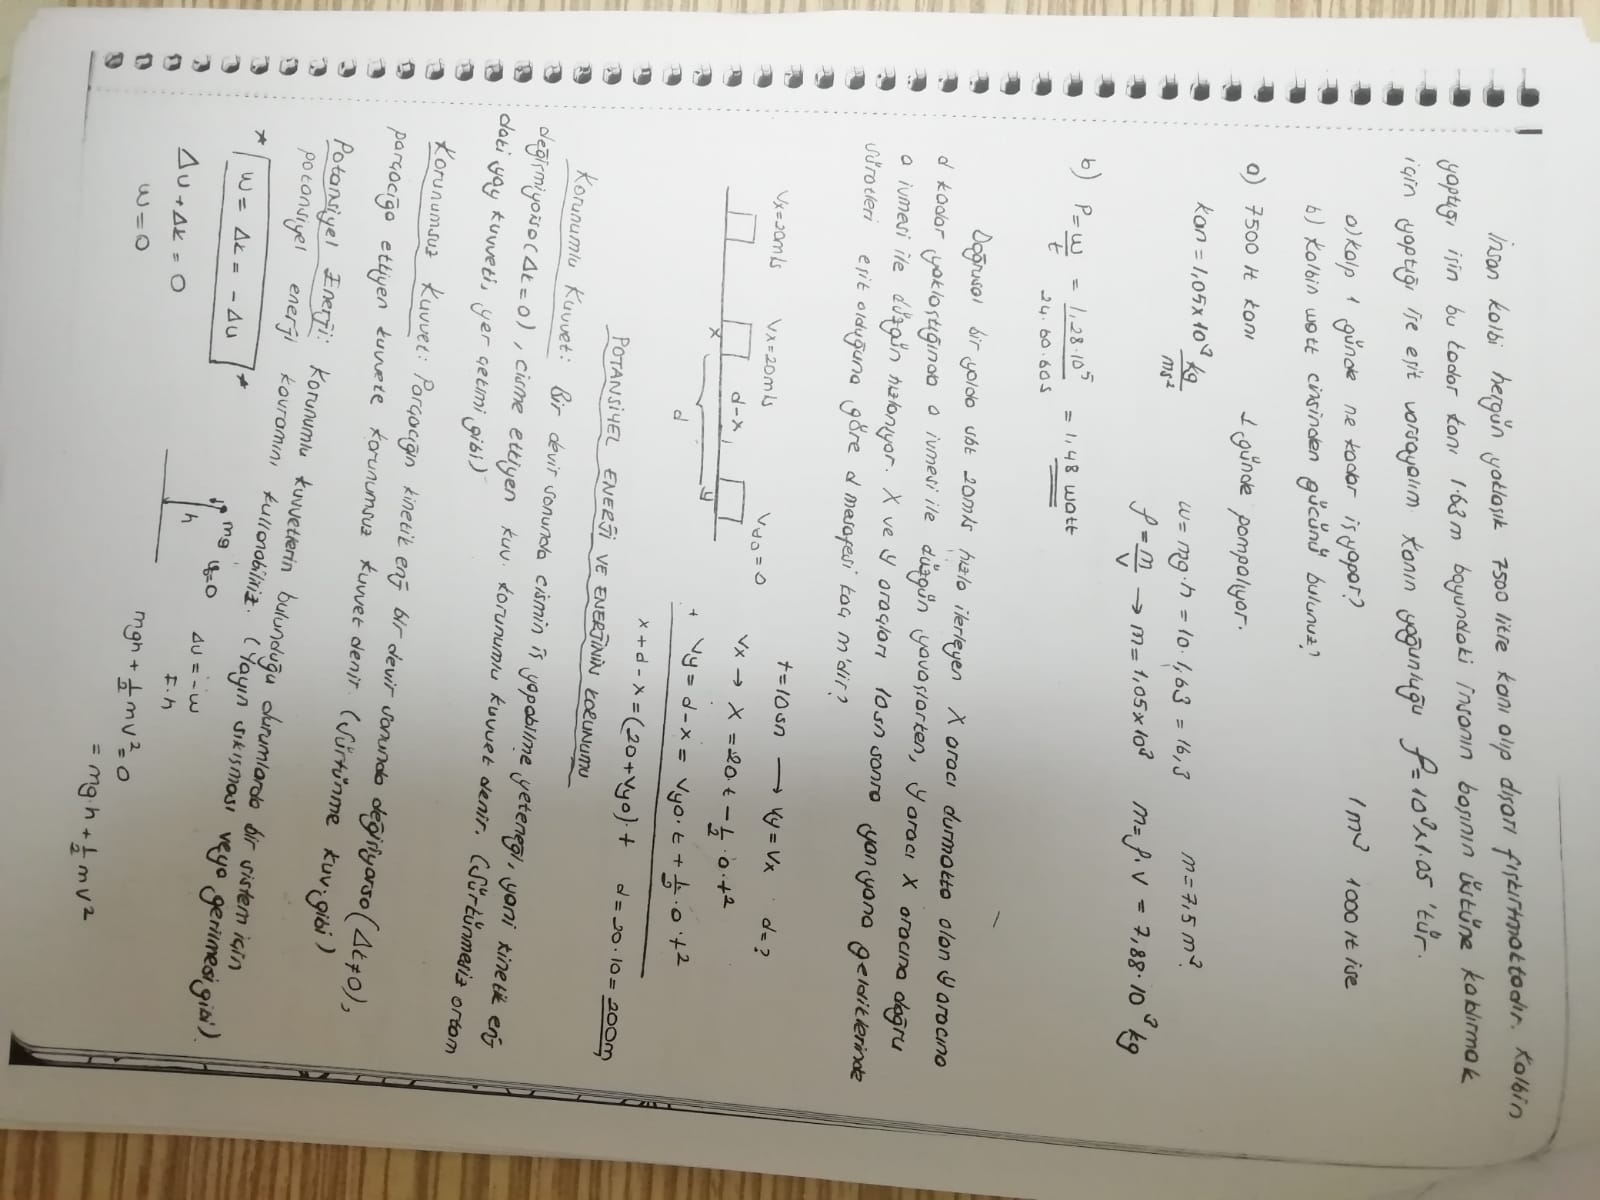 İnsan kalbi hergün yaklaşık 7500 litre kanı alıp dışarı fışkırtmaktadır. Kalbin
yaptığı işin bu kadar kanı 1.63m boyundaki insanın başının üstüne kaldırmak
için yaptığı işe eşit varsayalım. Kanın yoğunluğu ρ=10³x1.05 'tür.
a) Kalp 1 günde ne kadar iş yapar? 1m³ 1000 lt ise
b) Kalbin watt cinsinden gücünü bulunuz?
a) 7500 lt kanı 1 günde pompalıyor.
kan = 1,05x10³ kg/ms² w= mg.h = 10.1,63 = 16,3 m=7,5 m³.
ρ = m/V → m= 1,05x10³ m= ρ.V = 7,88.10³ kg
b) P= w/t = 1,28.10⁵/24.60.60s = 1,48 watt
Doğrusal bir yolda sbt 20m/s hızla ilerleyen X aracı durmakta olan Y aracına
d kadar yaklaştığında a ivmesi ile düzgün yavaşlarken, Y aracı X aracına doğru
a ivmesi ile düzgün hızlanıyor. X ve Y araçları 10sn sonra yan yana geldiklerinde
süratleri eşit olduğuna göre d mesafesi kaç m'dir?
Vx=20m/s Vx=20m/s Vy0=0 t=10sn → Vy=Vx d=?
d-x Vx → X = 20.t - 1/2.a.t²
x y
d + Vy = d-x = Vy0.t + 1/2.a.t²
x+d-x=(20+Vy0).t d= 20.10= 200m
POTANSİYEL ENERJİ VE ENERJİNİN KORUNUMU
Korunumlu Kuvvet: Bir devir sonunda cismin iş yapabilme yeteneği, yani kinetik enj
değişmiyorsa (Δk=0), cisme etkiyen kuv. korunumlu kuvvet denir. (Sürtünmesiz ortam
daki yay kuvveti, yer çekimi gibi)
Korunumsuz Kuvvet: Parçacığın kinetik enj bir devir sonunda değişiyorsa (Δk≠0),
parçacığa etkiyen kuvvete korunumsuz kuvvet denir. (Sürtünme kuv. gibi)
Potansiyel Enerji: Korunumlu kuvvetlerin bulunduğu durumlarda bir sistem için
potansiyel enerji kavramını kullanabiliriz. (Yayın sıkışması veya gerilmesi gibi).
* w = Δk = -Δu *
mg v=0 Δu = -w
h F.h
Δu + Δk = 0
w=0 mgh + 1/2 mV² = 0
= mg.h + 1/2 mV²